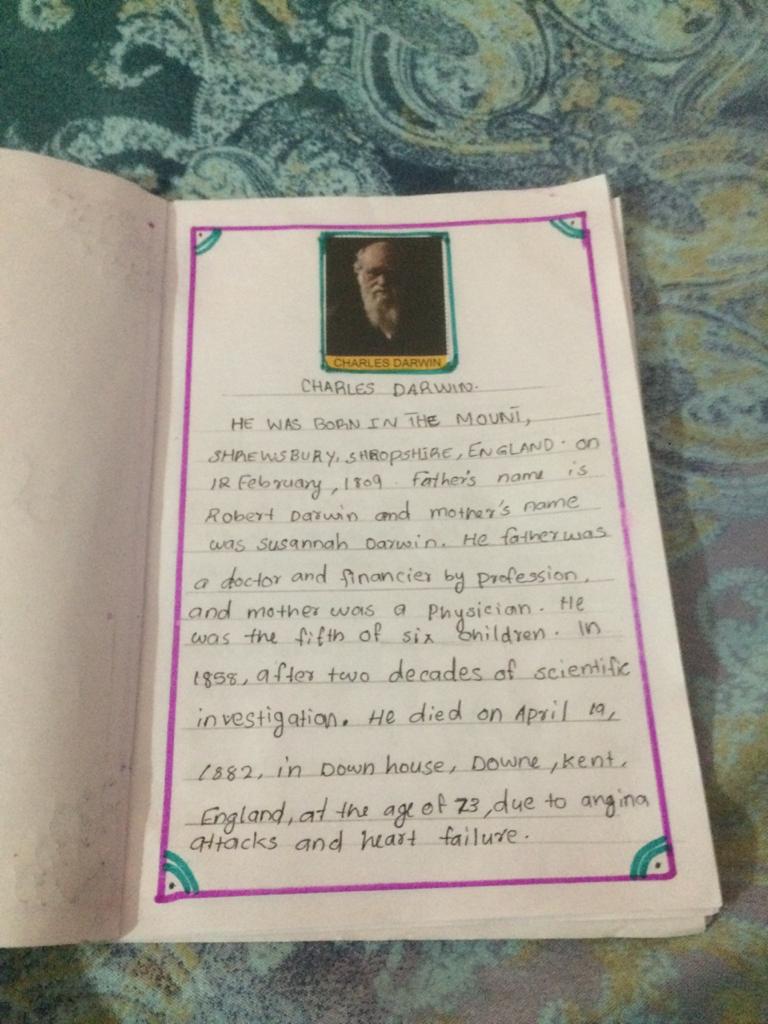 CHARLES DARWIN
CHARLES DARWIN.
HE WAS BORN IN THE MOUNT,
SHREWSBURY, SHROPSHIRE, ENGLAND. on
12 February, 1809. Father's name is
Robert Darwin and mother's name
was Susannah Darwin. He father was
a doctor and financier by profession,
and mother was a Physician. He
was the fifth of six children. In
1858, after two decades of scientific
investigation. He died on April 19,
1882, in Down house, Downe, Kent,
England, at the age of 73, due to angina
attacks and heart failure.